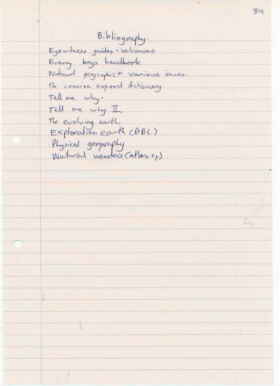 Bibliography.
Eyewitness guides - Volcanoes
Every boys handbook
National geographic
The concise oxford dictionary.
Tell me why.
Tell me why II.
The evolving earth.
Exploration earth (BBC)
Physical geography
Natural wonders (atlas